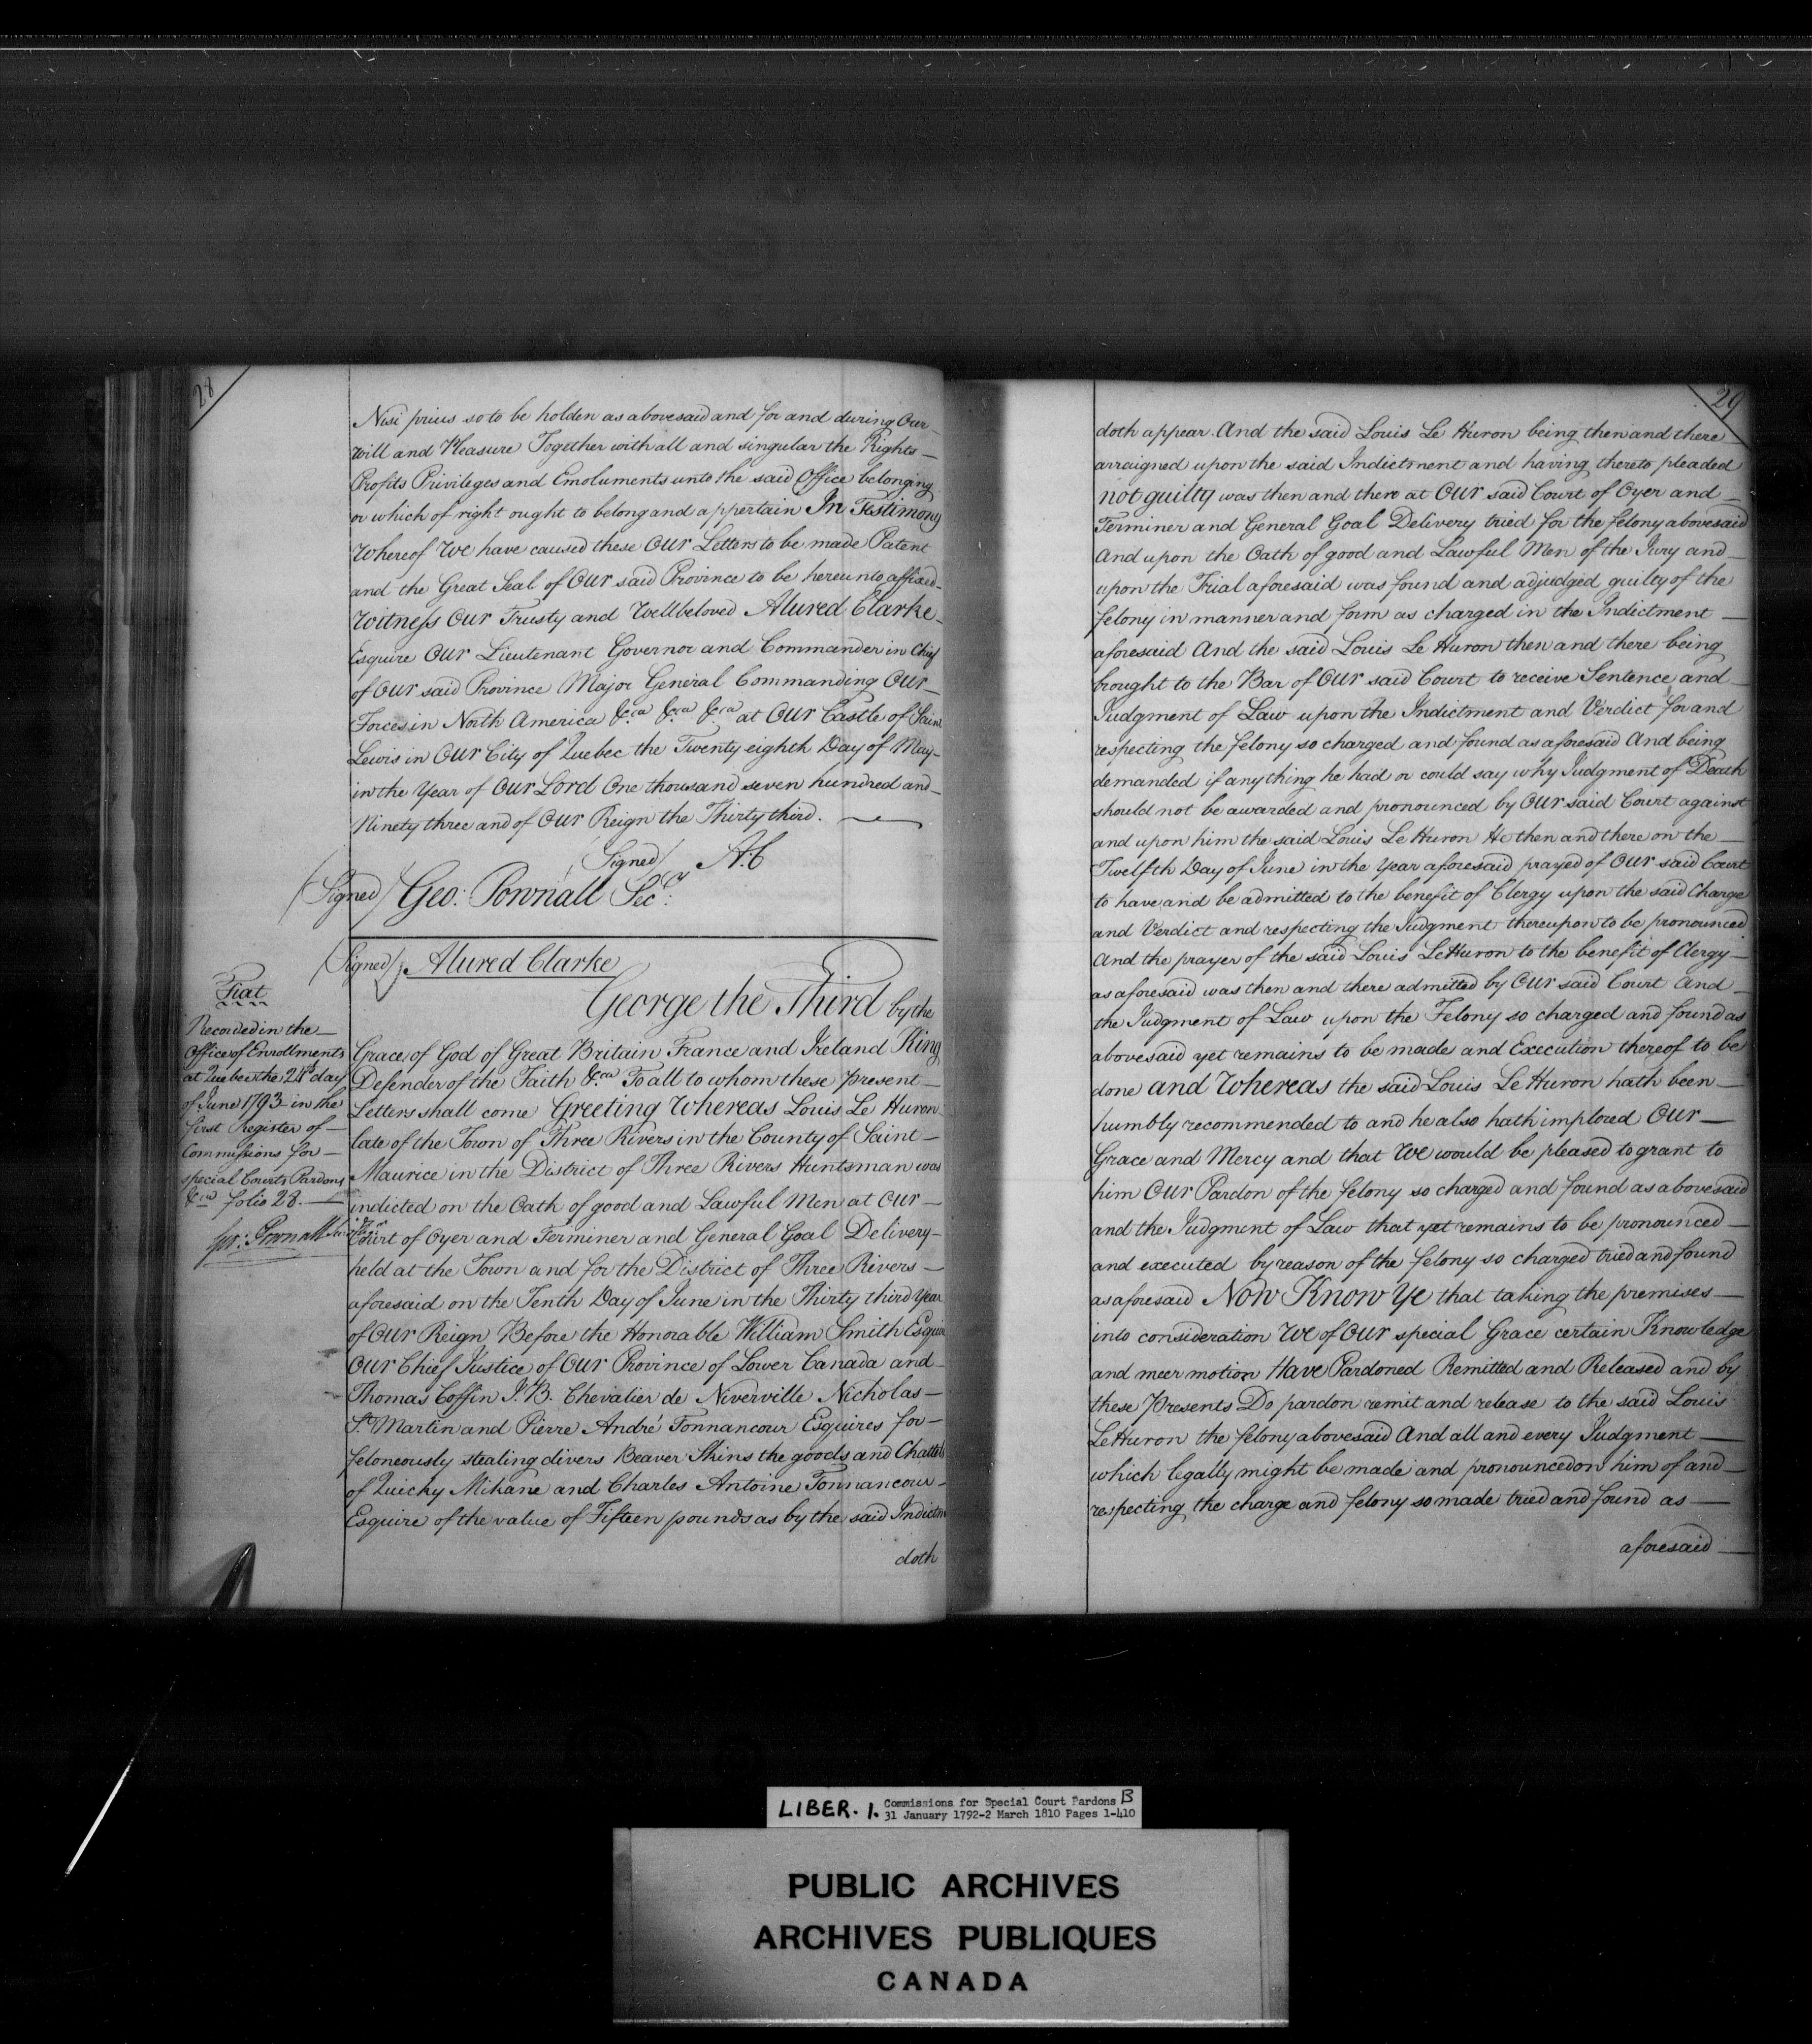 28
Nisi prius so to be holden as abovesaid and for and during Our
Will and Pleasure Together with all and singular the Rights
Profits Privileges and Emoluments unto the said Office belonging
or which of right ought to belong and appertain In Testimony
Whereof We have caused these Our Letters to be made Patent
and the Great Seal of Our said Province to be hereunto affixed
Witness Our Trusty and Wellbeloved Alured Clarke
Esquire Our Lieutenant Governor and Commander in Chief
of Our said Province Major General Commanding Our
Forces in North America &ca &ca &ca at Our Castle of Saint
Lewis in Our City of Quebec the Twenty eighth Day of May
in the Year of Our Lord One thousand seven hundred and
Ninety three and of Our Reign the Thirty third.
(Signed) A:C
(Signed) Geo: Pownall Secry:
(Signed) Alured Clarke
Fiat
Recorded in the
Office of Enrollments
at Quebec the day
of June 1793 in the
first Register of
Commissions for
special Courts Pardons
&ca folio 28.
Geo: Pownall
George the Third by the
Grace of God of Great Britain France and Ireland King
Defender of the Faith &ca To all to whom these present
Letters shall come Greeting Whereas Louis Le Huron
late of the Town of Three Rivers in the County of Saint
Maurice in the District of Three Rivers Huntsman was
indicted on the Oath of good and Lawful Men at Our
Court of Oyer and Terminer and General Goal Delivery
held at the Town and for the District of Three Rivers
aforesaid on the Tenth Day of June in the Thirty third Year
of Our Reign Before the Honorable William Smith Esquire
Our Chief Justice of Our Province of Lower Canada and
Thomas Coffin J.B. Chevalier de Niverville Nicholas
St. Martin and Pierre André Tonnancour Esquires for
feloneously stealing divers Beaver Skins the goods and Chattels
of Quichy Mikane and Charles Antoine Tonnancour
Esquire of the value of Fifteen pounds as by the said Indictm
doth
29
doth appear. And the said Louis Le Huron being then and there
arraigned upon the said Indictment and having thereto pleaded
not guilty was then and there at Our said Court of Oyer and
Terminer and General Goal Delivery tried for the felony abovesaid
And upon the Oath of good and Lawful Men of the Jury and
upon the Trial aforesaid was found and adjudged guilty of the
felony in manner and form as charged in the Indictment
aforesaid And the said Louis Le Huron then and there being
brought to the Bar of Our said Court to receive Sentence and
Judgment of Law upon the Indictment and Verdict for and
respecting the felony so charged and found as aforesaid And being
demanded if any thing he had or could say why Judgment of Death
should not be awarded and pronounced by Our said Court against
and upon him the said Louis Le Huron He then and there on the
Twelfth Day of June in the Year aforesaid prayed of Our said Court
to have and be admitted to the benefit of Clergy upon the said Charge
and Verdict and respecting the Judgment thereupon to be pronounced
And the prayer of the said Louis LeHuron to the benefit of Clergy
as aforesaid was then and there admitted by Our said Court And
the Judgment of Law upon the Felony so charged and found as
abovesaid yet remains to be made and Execution thereof to be
done and Whereas the said Louis Le Huron hath been
humbly recommended to and he also hath implored Our
Grace and Mercy and that We would be pleased to grant to
him Our Pardon of the felony so charged and found as abovesaid
and the Judgment of Law that yet remains to be pronounced
and executed by reason of the felony so charged tried and found
as aforesaid Now Know Ye that taking the premises
into consideration We of Our special Grace certain Knowledge
and meer motion Have Pardoned Remitted and Released and by
these Presents Do pardon remit and release to the said Louis
LeHuron the felony abovesaid And all and every Judgment
which legally might be made and pronounced on him of and
respecting the charge and felony so made tried and found as
aforesaid
LIBER. 1. Commissions for Special Court Pardons B
31 January 1792-2 March 1810 Pages 1-410
PUBLIC ARCHIVES
ARCHIVES PUBLIQUES
CANADA